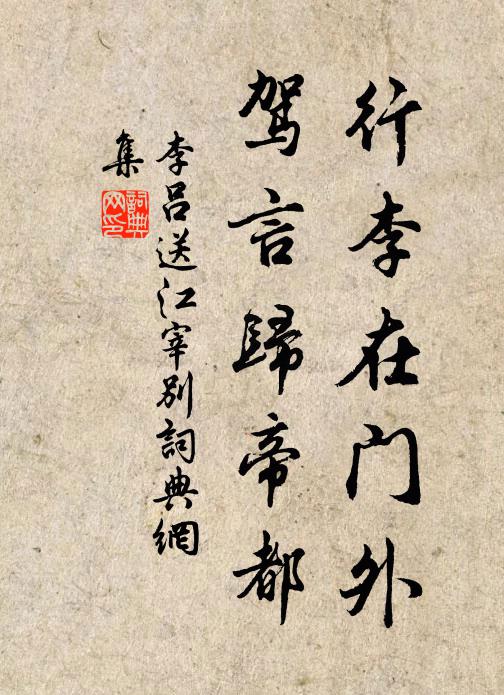 行李在门外
驾言歸帝都
李吕送江宰别詞典網
集
詞典
网印